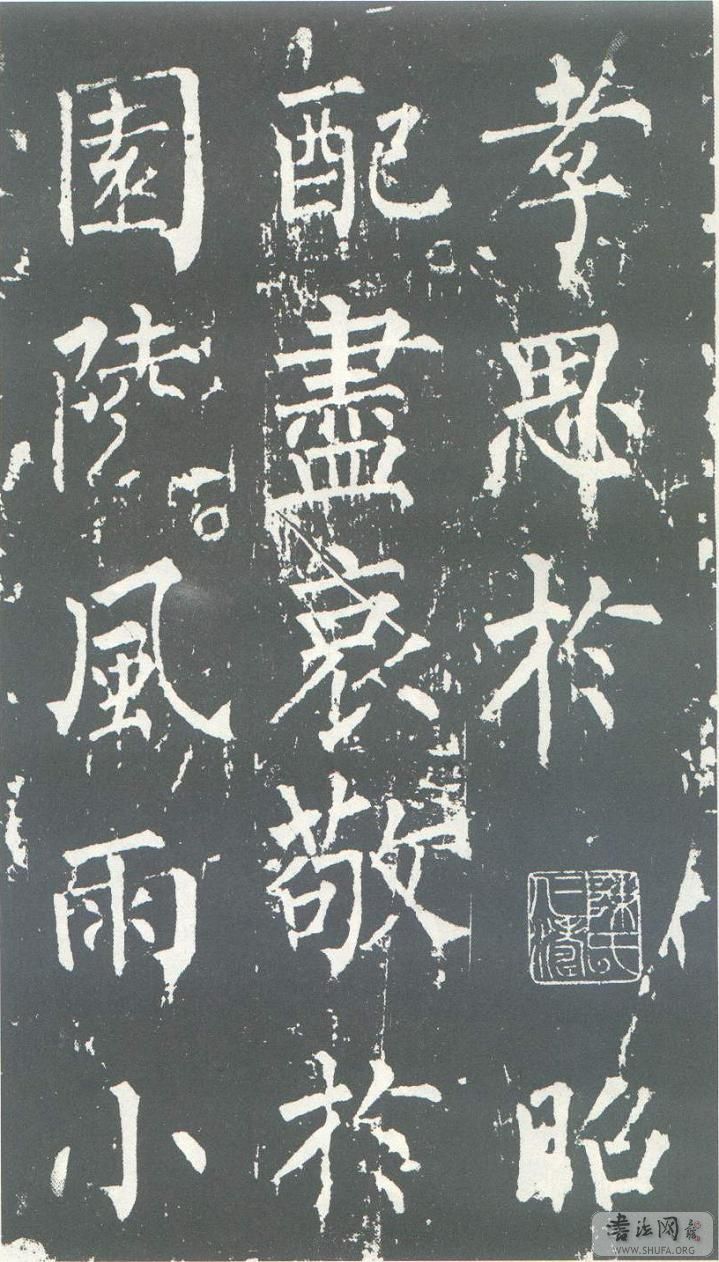 孝思於昭
配盡哀敬於
園陵風雨小
陳氏仁濤
書法网
WWW.SHUFA.ORG